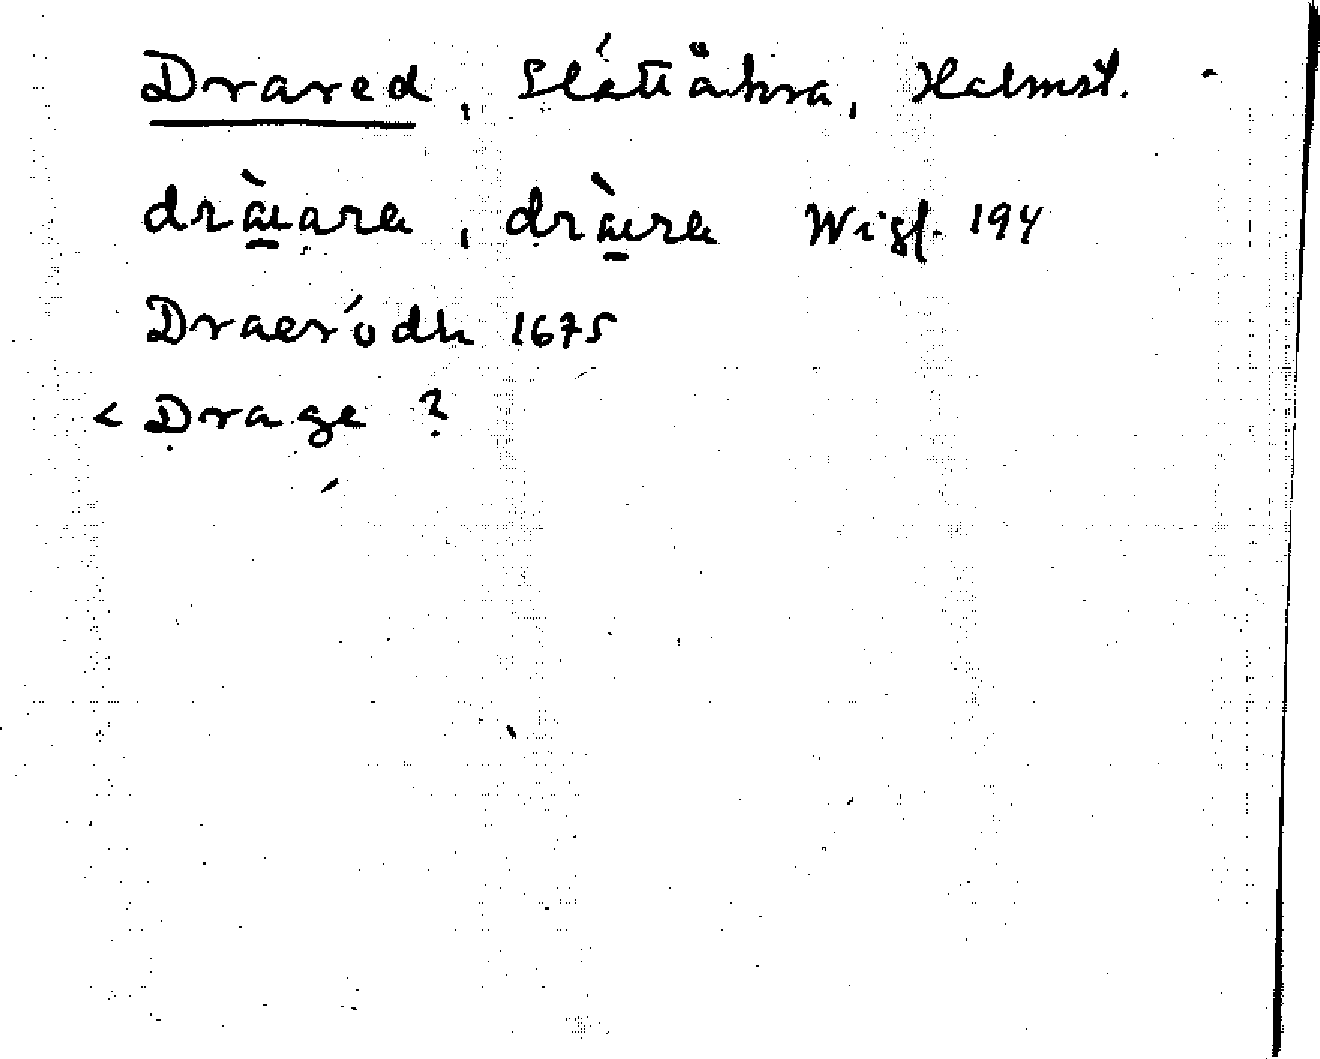 Drared, Slättåkra, Halmst.
dràarɐ, dràrɐ Wigf. 194
Draerödh 1675
< Drage ?